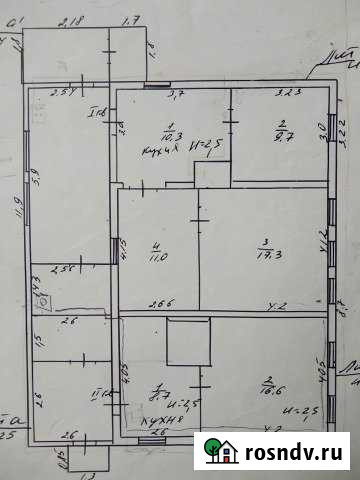 2,18
1.7
1,8
2.54
I кв
3,7
3.23
1
10,3
кухня
H=2,5
2
9.7
3.0
3.22
5,9
11,9
2.56
4.15
4
11.0
3
17.3
4.12
8,7
2.66
4.2
1,43
2.6
1,5
2.6
II кв
4.05
1
8,7
H=2,5
кухня
2.6
2
16.6
H=2,5
4.05
4.2
2.6
0,85
rosndv.ru